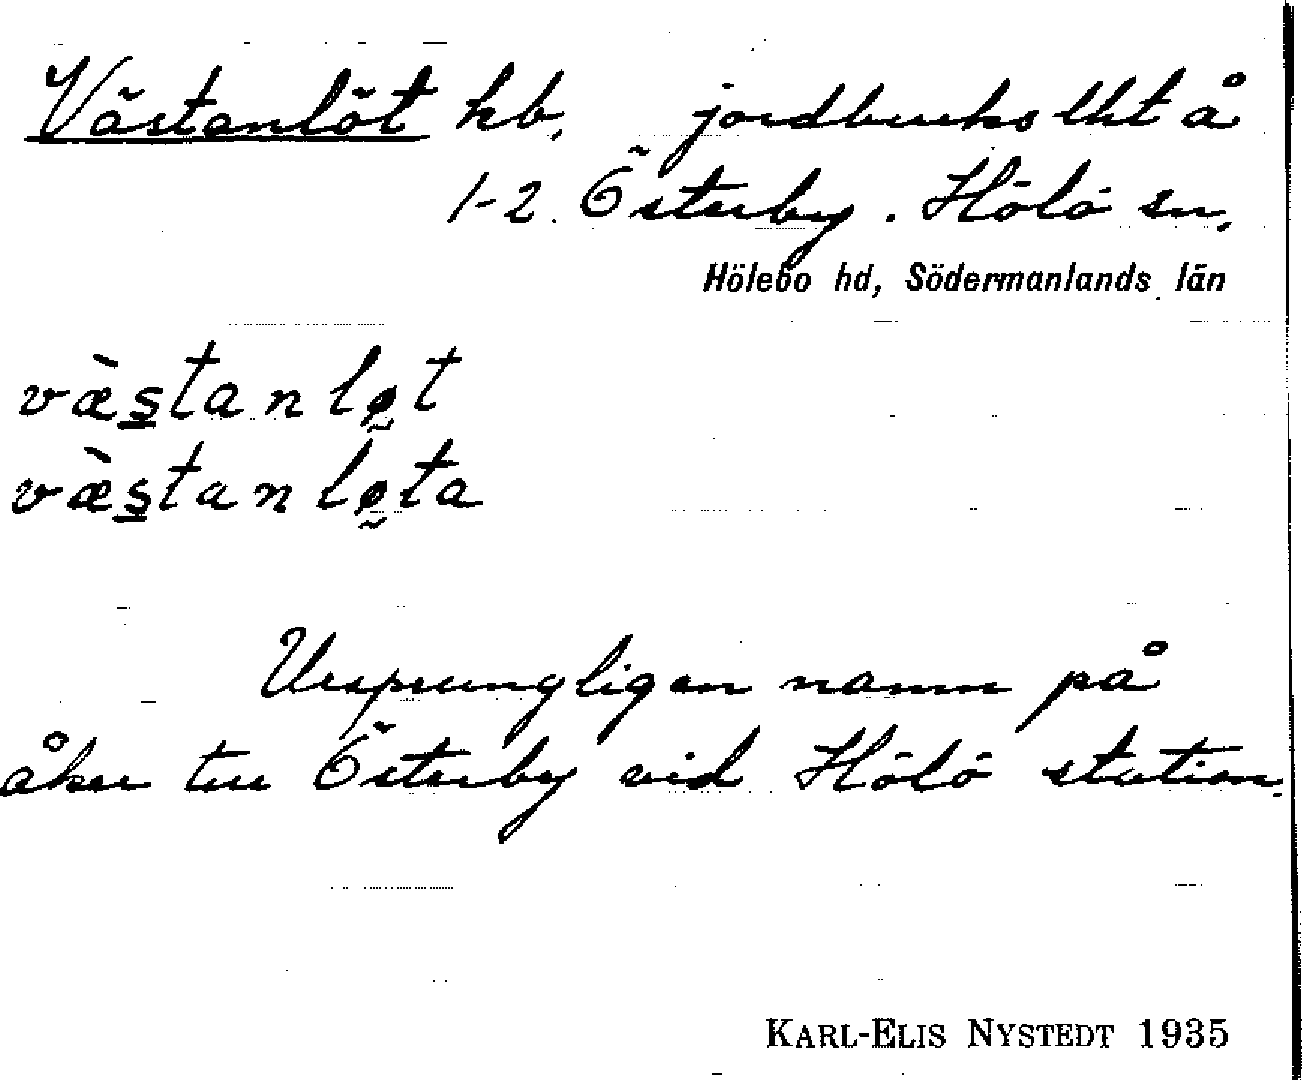 Västanlöt hb, jordbrukslht å
1-2 Österby. Hölö sn,
Hölebo hd, Södermanlands län
væ̀s̲tanlø̰t
væ̀s̲tanlø̰ta
Ursprungligen namn på
åker tu Österby vid Hölö station.
KARL-ELIS NYSTEDT 1935